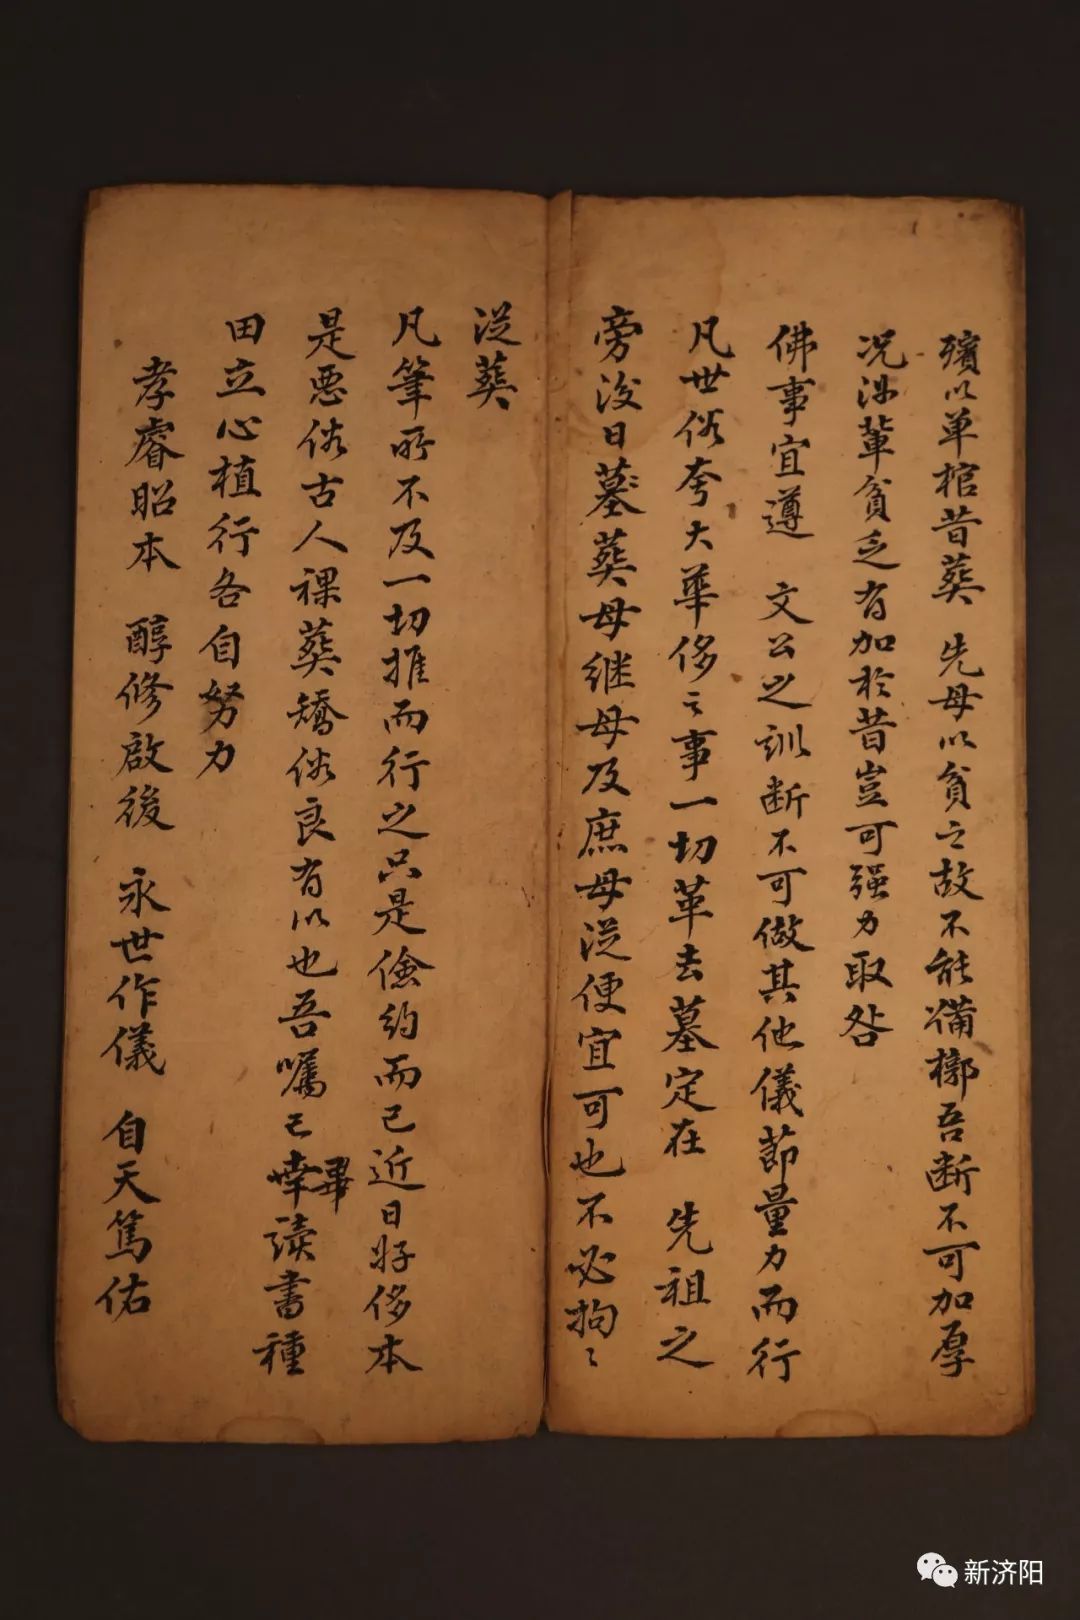 殯以单棺昔葬 先母以貧之故不能備槨吾断不可加厚
况汝輩貧乏有加於昔豈可强力取咎
佛事宜遵 文公之訓断不可做其他儀節量力而行
凡世俗夸大華侈之事一切革去墓定在 先祖之
旁後日墓葬母继母及庶母從便宜可也不必拘々
從葬
凡筆所不及一切推而行之只是儉約而已近日好侈本
是悪俗古人裸葬矯俗良有以也吾嘱已畢幸讀書種
田立心植行各自努力
孝睿昭本 醇修啟後 永世作儀 自天篤佑
新济阳